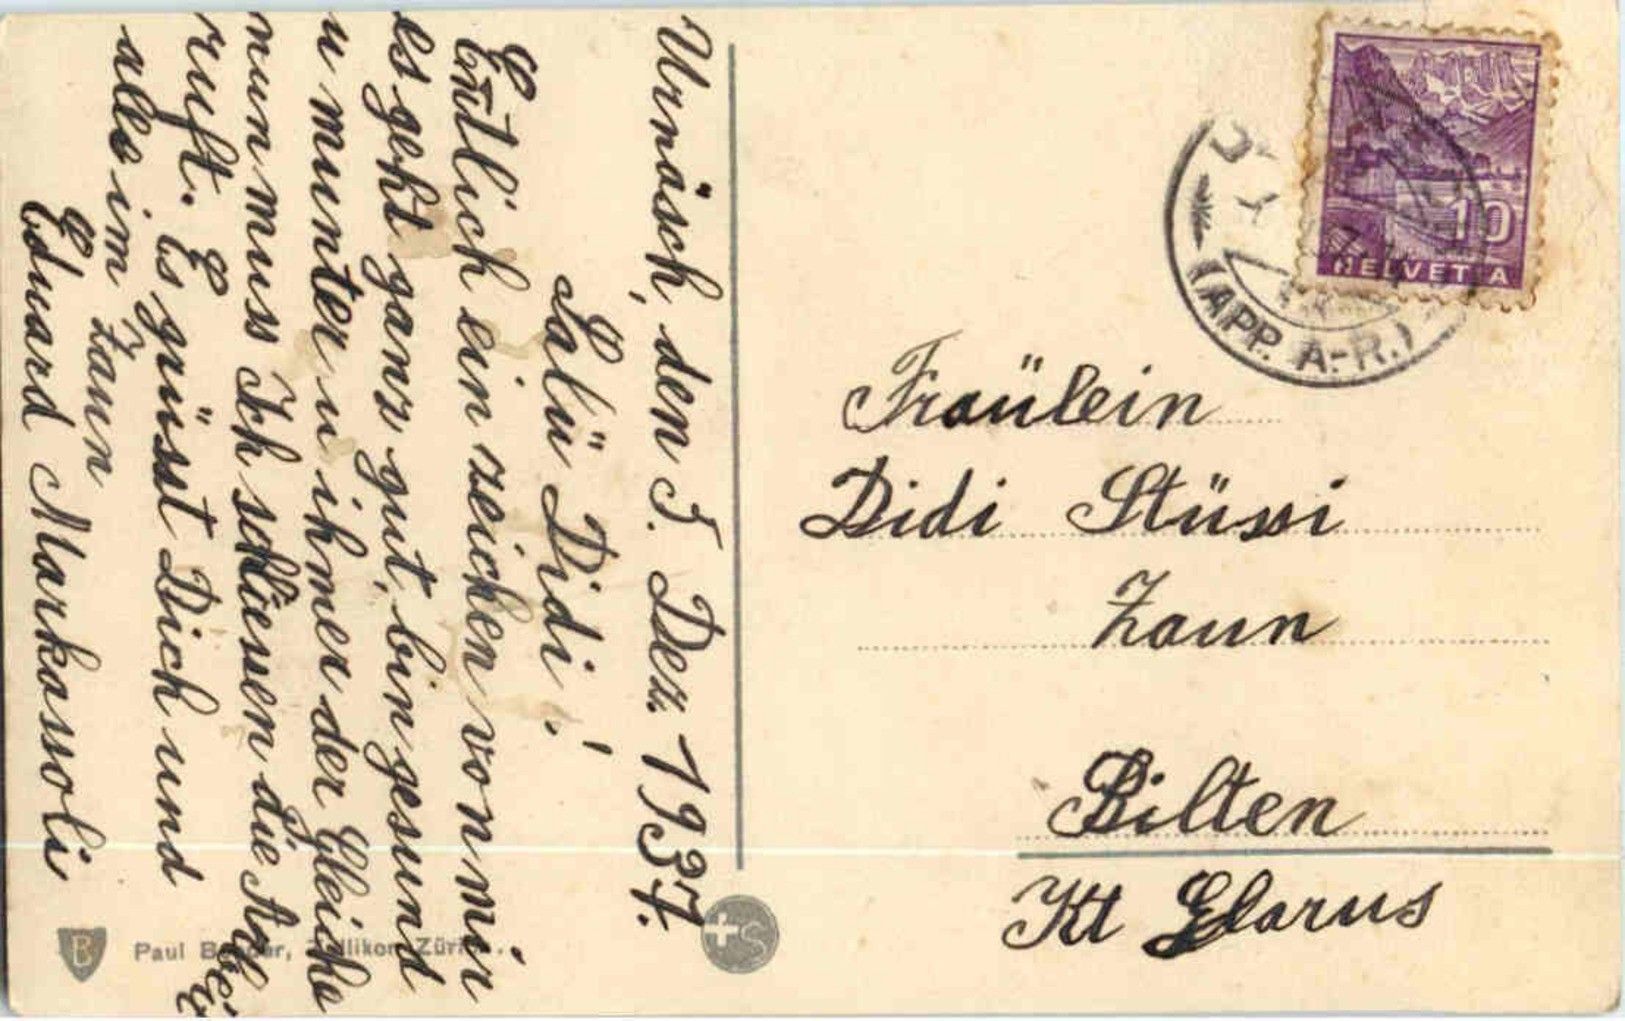 Urnäsch, den 5. Dez. 1937.
Salü Didi!
Entlich ein zeichen von mir
es geht ganz gut, bin gesund
u munter u ihmer der Gleiche
nun muss Ich schliesen die Arbeit
ruft. Es grüsst Dich und
alle im Zaun
Eduard Markassoli
Fraülein
Didi Stüssi
Zaun
Bilten
Kt Glarus
10
HELVETIA
(APP. A.-R.)
B
Paul Zürich
+S